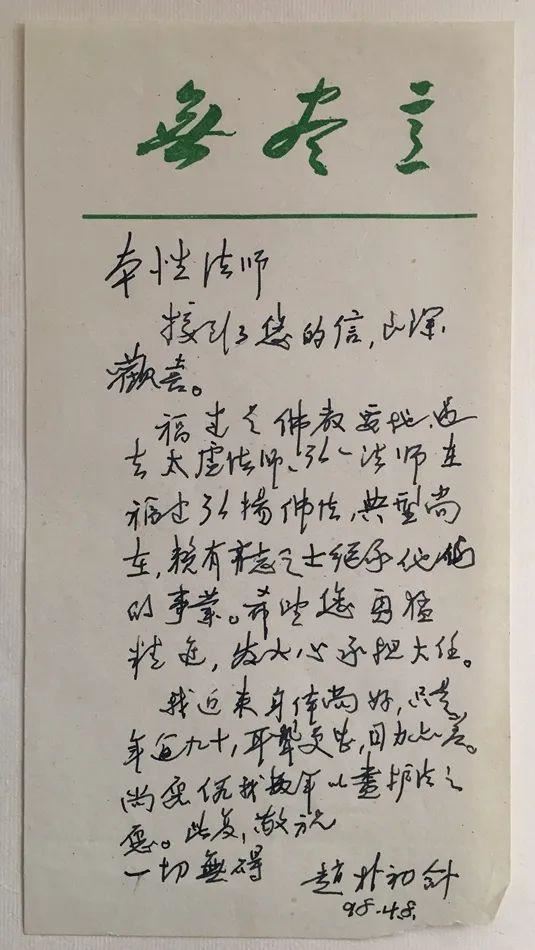 無尽意
本性法师
接到了您的信,至深
歡喜。
福建是佛教要地,过
去太虚法师、弘一法师在
福建弘揚佛法,典型尚
在,赖有有志之士继承他们
的事業。希望您勇猛
精进,发大心承担大任。
我近来身体尚好,只是
年过九十,耳聋更甚,目力亦差。
尚愿假我数年以盡护法之
愿。此复,敬祝
一切無碍
趙朴初
98.4.8.